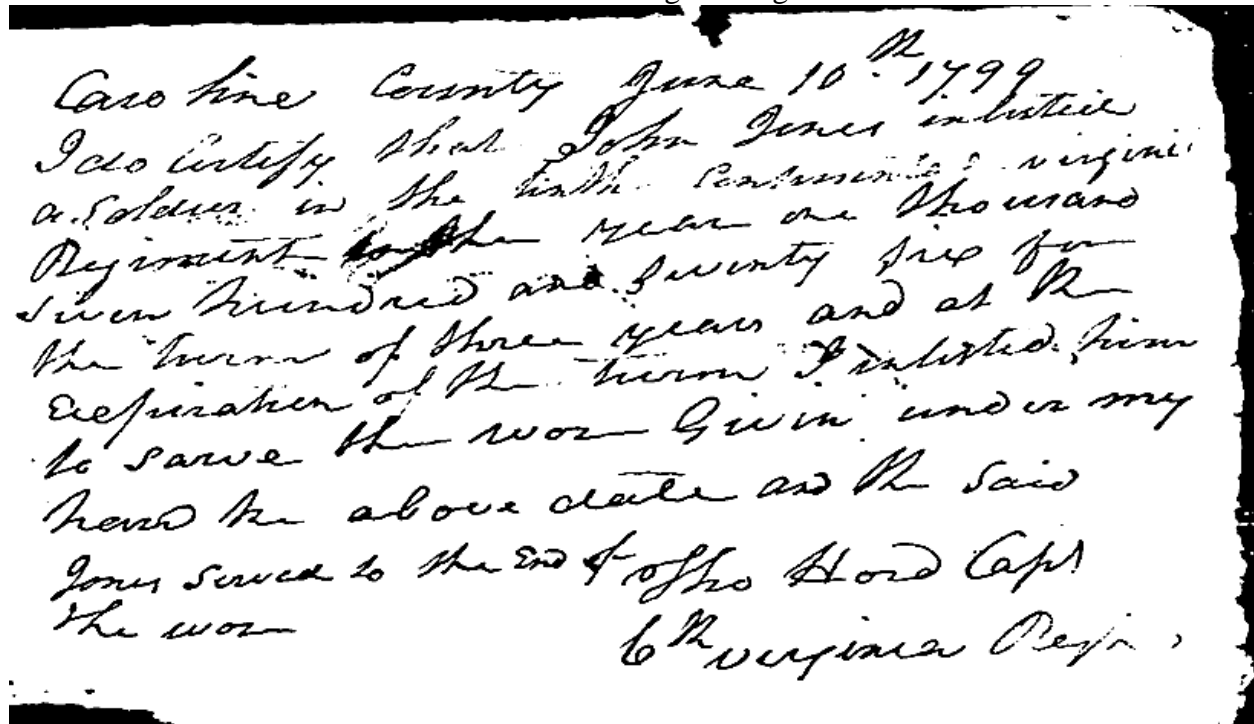 Caroline County June 10th 1799
I do Certify that John Jones inlisted
a Soldier in the tinth Continental virginia
Regiment in the year one thousand
seven hundred and seventy six for
the turm of three years and at the
Expiration of the turm I inlisted him
to sarve the war Givin under my
hand the above date and the said
Jones served to the End of
the war
Tho Hord Capt
6th virginia Regt